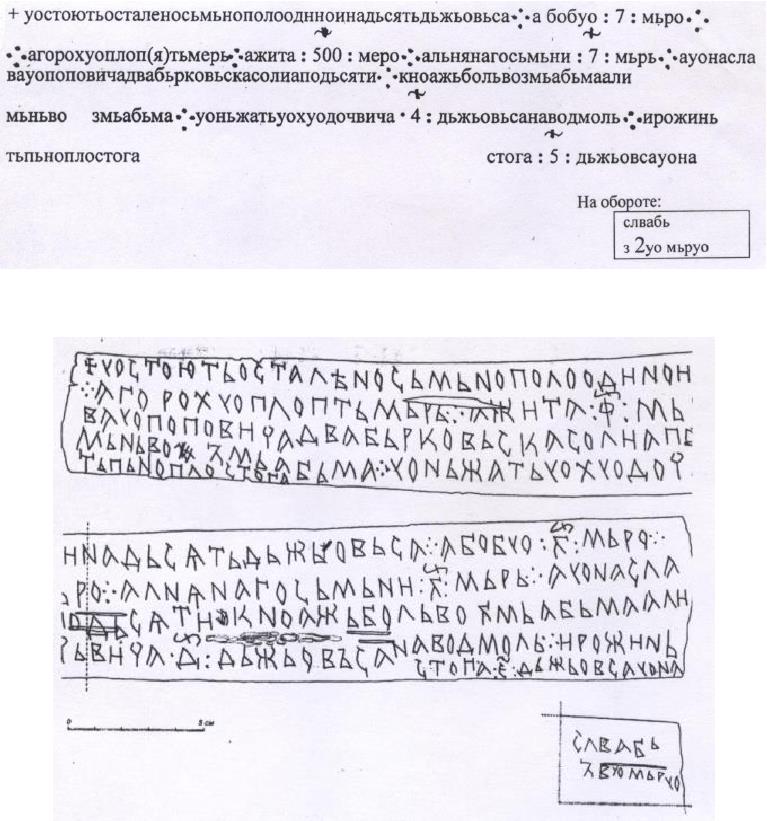 + уостоютьосталеносьмьнополоодннoинадьсятьдьжьовьса⁘а бобуо : 7 : мьро⁘
⁘агорохуоплоп(я)тьмерь⁘ажита : 500 : меро⁘альнянагосьмьни : 7 : мьрь⁘ауонасла
вауопоповичадвабьрковьскасолиаподьсяти⁘кноажьбольвозмьабьмаали
мьньво змьабьма⁘уоньжатьуохуодочвича · 4 : дьжьовьсанаводмоль⁘ирожинь
тьпьноплостога стога : 5 : дьжьовсауона
На обороте:
слвабь
з 2уо мьруо
ѴОСТОЮТЬОСТАЛѢNОСЬМЬNОПОЛООДНNОН
⁘АГОРОХѴОПЛОПТЬМЬРЬ⁘АЖНТА:Ф:МЬ
ВАѴОПОПОВНЧАДВАБЬРКОВЬСКАСОЛНАПЕ
МЬNЬВО ЗМЬАБЬМА⁘ѴОNЬЖАТЬѴОХѴОДОЧ
ТЬПЬNОПЛОСТОГА
НNАДЬСАТЬДЬЖЬОВЬСА⁘АБОБѴО:З:МЬРО⁘
РО⁘АЛNАNАГОСЬМЬNН:З:МЬРЬ⁘АѴОNАСЛА
САТН КNОАЖЬБОЛЬВОЗМЬАБЬМААЛН
ЬВНЧА·Д:ДЬЖЬОВЪСАNАВОДМОЛЬ⁘НРОЖНNЬ
СТОГА:Е:ДЬЖЬОВСАѴОNА
0 5 см
СЛВАБЬ
ЗВѴОМЬРѴО